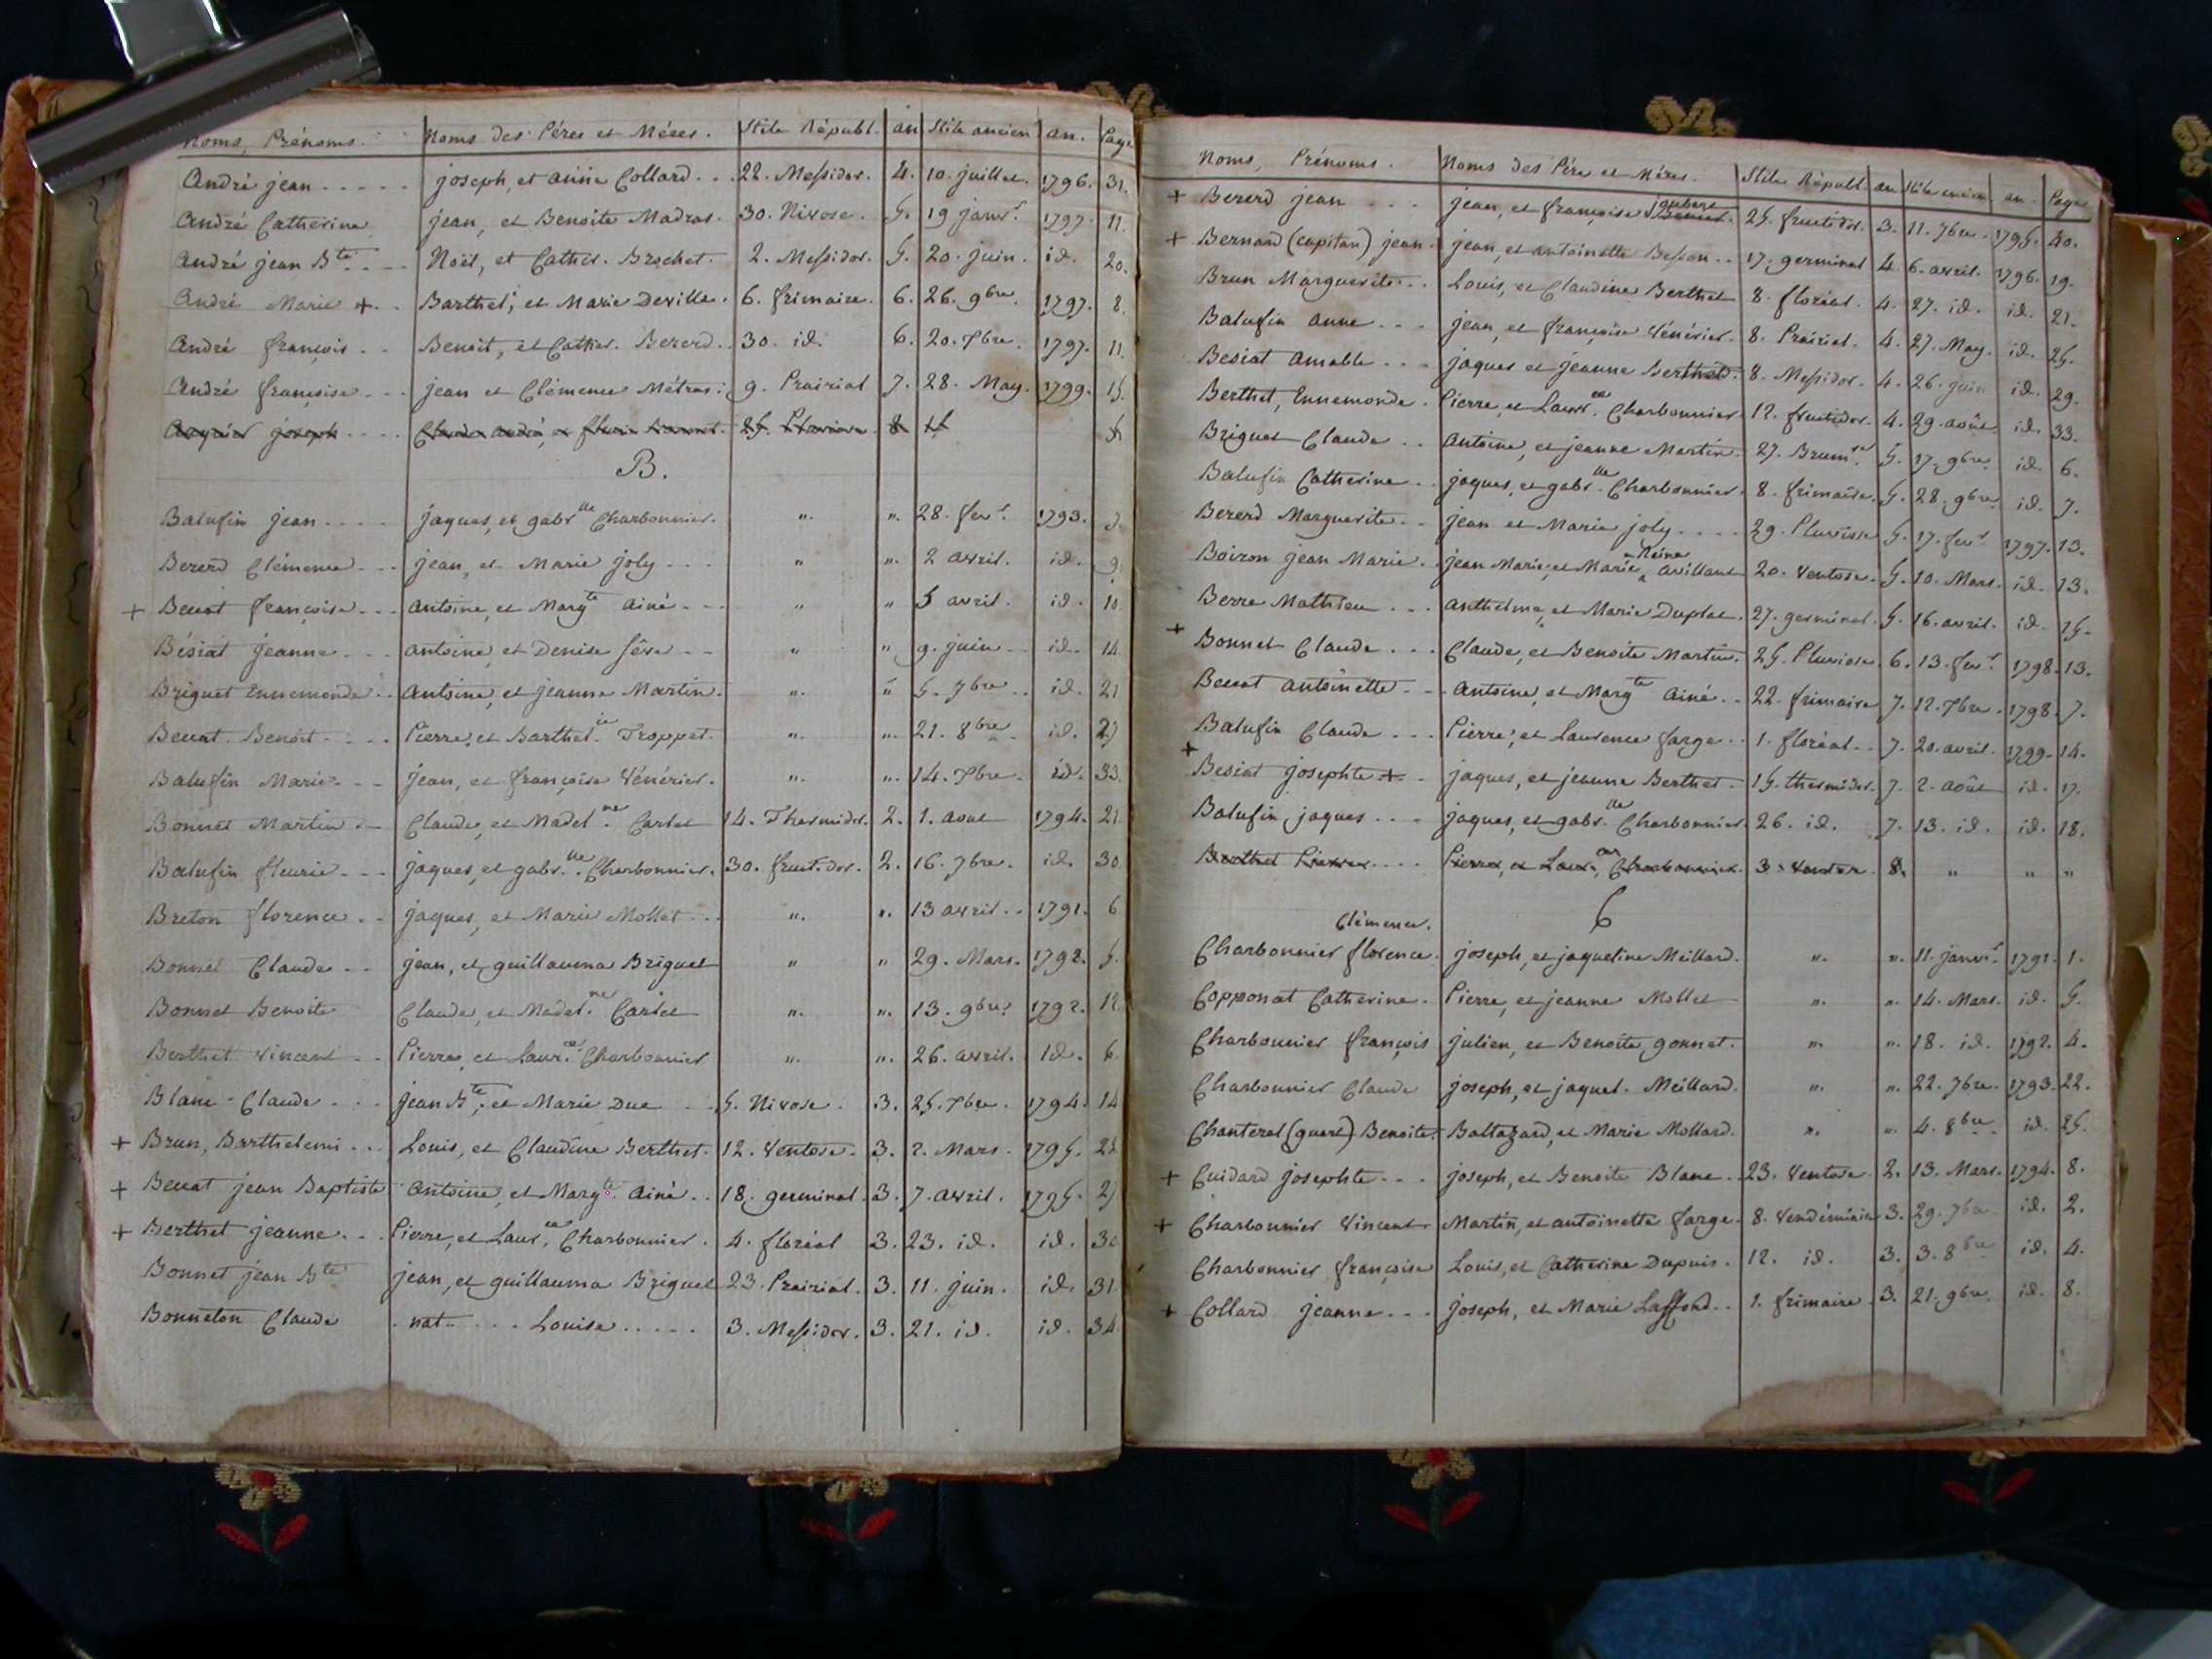 Noms, Prénoms. Noms des Péres et Méres. Stile Républ. an Stile ancien an. Page
André jean joseph, et anne Collard 22. Messidor. 4. 10. juillet. 1796. 31.
André Catherine jean, et Benoite Madras. 30. Nivose. 5. 19 janvr. 1797. 11.
André jean Bte. Noël, et Cather. Brochet. 2. Messidor. 5. 20. juin. id. 20.
André Marie + Barthel, et Marie Deville. 6. frimaire. 6. 26. 9bre. 1797. 8.
André françois Benoit, et Cather. Bererd. 30. id. 6. 20. Xbre. 1797. 11.
André françoise jean et Clémence Métras: 9. Prairial 7. 28. May. 1799. 15.
joseph 8
B.
Balufin jean jaques, et gabrlle Charbonnier. ". ". 28. fevr. 1793.
Bererd Clémence jean, et Marie joly " ". 2 avril. id. 9.
+ Beccat françoise antoine, et Margte ainé " " 5 avril. id. 10.
Bésiat jeanne antoine, et Denise séve " " 9. juin id. 14
Briguet Ennemonde antoine, et jeanne Martin. ". " 5. 7bre. id. 21
Beccat Benoit Pierre, et Barthel. Troppet. ". ". 21. 8bre id.
Balufin Marie jean, et françoise Vénérier. ". ". 14. Xbre. id. 33.
Bonnet Martin Claude, et Madelne. Carlet 14. Thermidor. 2. 1. aout 1794. 21
Balufin fleurie jaques, et gabrlle. Charbonnier. 30. fructidor. 2. 16. 7bre. id. 30
Breton florence jaques, et Marie Mollet ". ". 13 avril. 1791. 6
Bonnet Claude jean, et guillauma Briguet " " 29. Mars. 1792. 5.
Bonnet Benoite Claude, et Madelne. Carlet ". ". 13. 9bre. 1792. 12
Berthet Vincent Pierre, et Laurce. Charbonnier ". ". 26. avril. Id. 6.
Blanc Claude jean Bte, et Marie Duc 5. Nivose. 3. 25. Xbre. 1794. 14
+ Brun, Barthelemi Louis, et Claudine Berthet. 12. Ventose. 3. 2. Mars. 1795.
+ Beccat jean Baptiste antoine, et Margte. ainé 18. germinal. 3. 7. avril. 1795.
+ Berthet jeanne Pierre, et Laurce. Charbonnier. 4. floréal 3. 23. id. id. 30
Bonnet jean Bte jean, et guillauma Briguet 23. Prairial. 3. 11. juin. id. 31
Bonneton Claude nat. Louise 3. Messidor. 3. 21. id. id. 34
Noms, Prénoms. Noms des Pére et Méres. Stile Républ. an Stile ancien an. Page
+ Bererd jean jean, et françoise 25. fructidor. 3. 11. 7bre. 1795. 40.
+ Bernard (capitan) jean. jean, et antoinette Besson. 17. germinal 4. 6. avril. 1796. 19.
Brun Marguerite Louis, et Claudine Berthet 8. floréal. 4. 27. id. id. 21.
Balufin anne jean, et françoise Vénérier. 8. Prairial. 4. 27. May. id. 25.
Besiat amable jaques et jeanne Berthet. 8. Messidor. 4. 26. juin id. 29.
Berthet, Ennemonde. Pierre, et Laurce. Charbonnier 12. fructidor. 4. 29. août id. 33.
Briguet Claude antoine, et jeanne Martin. 27. Brumre. 5. 17. 9bre. id. 6.
Balufin Catherine jaques, et gabrlle. Charbonnier. 8. frimaire. 5. 28. 9bre. id. 7.
Bererd Marguerite jean et Marie joly 29. Pluviose 5. 17. fevr. 1797. 13.
Boiron jean Marie. jean Marie, et Marie Reine avillant 20. Ventose. 5. 10. Mars. id. 13.
Berre Mathieu anthelme, et Marie Duplat. 27. germinal. 5. 16. avril. id. 15.
+ Bonnet Claude Claude, et Benoite Martin. 25. Pluviose. 6. 13. fevr. 1798. 13.
Beccat antoinette antoine, et Margte ainé 22. frimaire 7. 12. Xbre. 1798. 7.
Balufin Claude Pierre, et Laurence farge 1. floréal. 7. 20. avril. 1799. 14.
+ Besiat josephte + jaques, et jeanne Berthet. 15. thermidor. 7. 2. août id. 17.
Balufin jaques jaques, et gabrlle. Charbonnier. 26. id. 7. 13. id. id. 18.
Berthet Pierre Pierre, et Laurce. Charbonnier. 3. Ventose. 8. " " "
C
Clémence.
Charbonnier florence. joseph, et jaqueline Meillard. ". ". 11. janvr. 1791. 1.
Copponat Catherine. Pierre, et jeanne Mollet ". ". 14. Mars. id. 5.
Charbonnier françois julien, et Benoite gonnet. ". ". 18. id. 1792. 4.
Charbonnier Claude joseph, et jaquel. Meillard. ". ". 22. 7bre. 1793. 22.
Chanterel (quart) Benoite. Baltazard, et Marie Mollard. ". ". 4. 8bre. id. 25.
+ Cuidard josephte joseph, et Benoite Blanc. 23. Ventose. 2. 13. Mars. 1794. 8.
+ Charbonnier Vincent. Martin, et antoinette farge. 8. Vendémiaire 3. 29. 7bre id. 2.
Charbonnier françoise Louis, et Catherine Dupuis. 12. id. 3. 3. 8bre id. 4.
+ Collard jeanne joseph, et Marie Laffond. 1. frimaire. 3. 21. 9bre. id. 8.